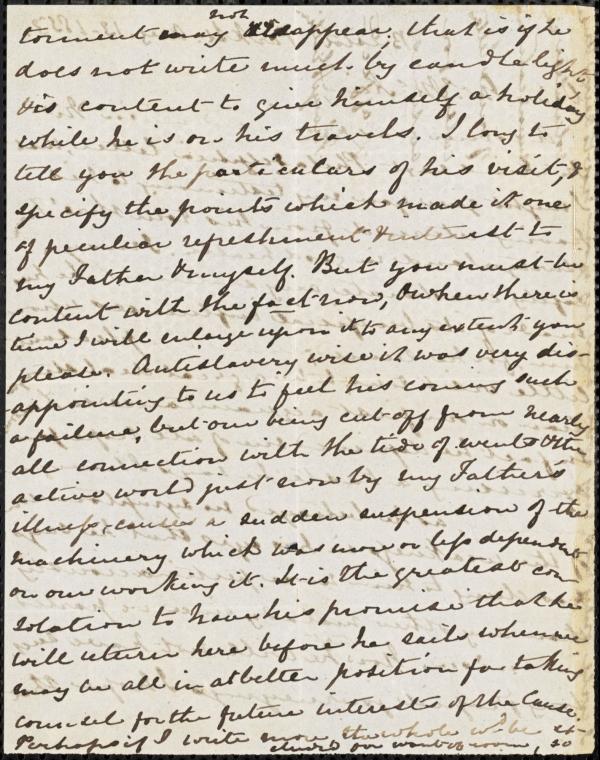 torment may not disappear; that is if he
does not write much by candle light,
& is content to give himself a holiday
while he is on his travels. I long to
tell you the particulars of his visit, &
specify the points which made it one
of peculiar refreshment & interest to
my Father & myself. But you must be
content with the fact now, & when there is
time I will enlarge upon it to any extent you
please. Antislavery wise it was very dis-
-appointing to us to feel his coming such
a failure, but our being cut off from nearly
all connection with the tide of events & the
active world just now by my Father's
illness, causes a sudden suspension of the
machinery which was more or less dependent
on our working it. It is the greatest con-
solation to have his promise that he
will return here before he sails when we
may be all in a better position for taking
counsel for the future interests of the Cause.
Perhaps if I write more the whole wd. be
our want of room, so